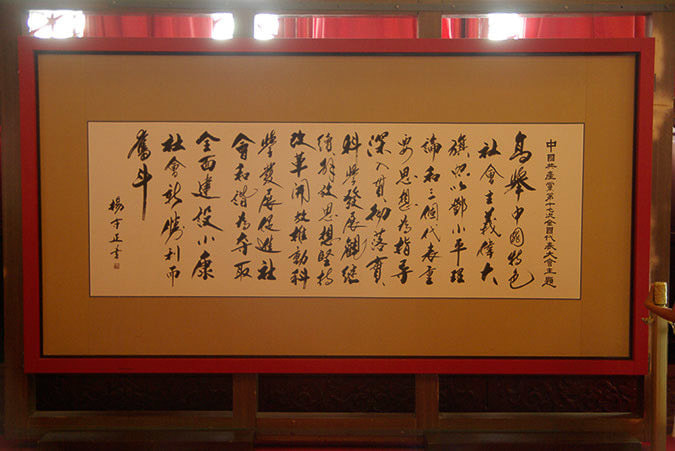 中國共產黨第十七次全国代表大會主題
高舉中國特色
社會主義偉大
旗幟以鄧小平理
論和三個代表重
要思想為指導
深入貫徹落實
科學發展觀繼
續解放思想堅持
改革開放推動科
學發展促進社
會和諧為奪取
全面建設小康
社會新勝利而
奮斗
楊守正書